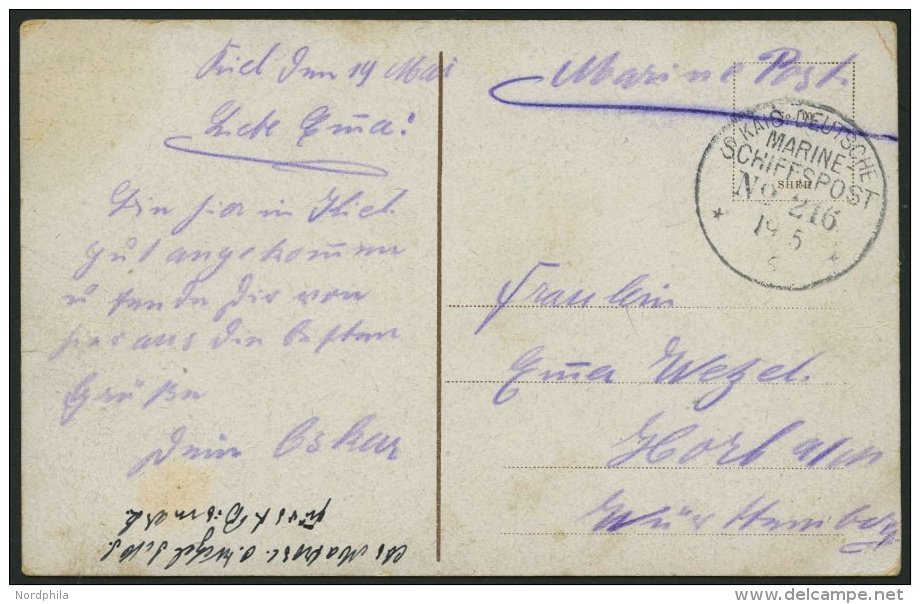 Kiel den 19 Mai
Liebe Em̅a!
Bin hier in Kiel
gut angekom̅en
u sende Dir von
hier aus die besten
Grüße
Dein Oskar
Fürst Bismark.
Marine Post.
KAIS. DEUTSCHE
MARINE-
SCHIFFSPOST
No 216
19 5
Fraulein
Em̅a Wetzel.
Horb a/
Württemberg
Nordphila
delcampe.net